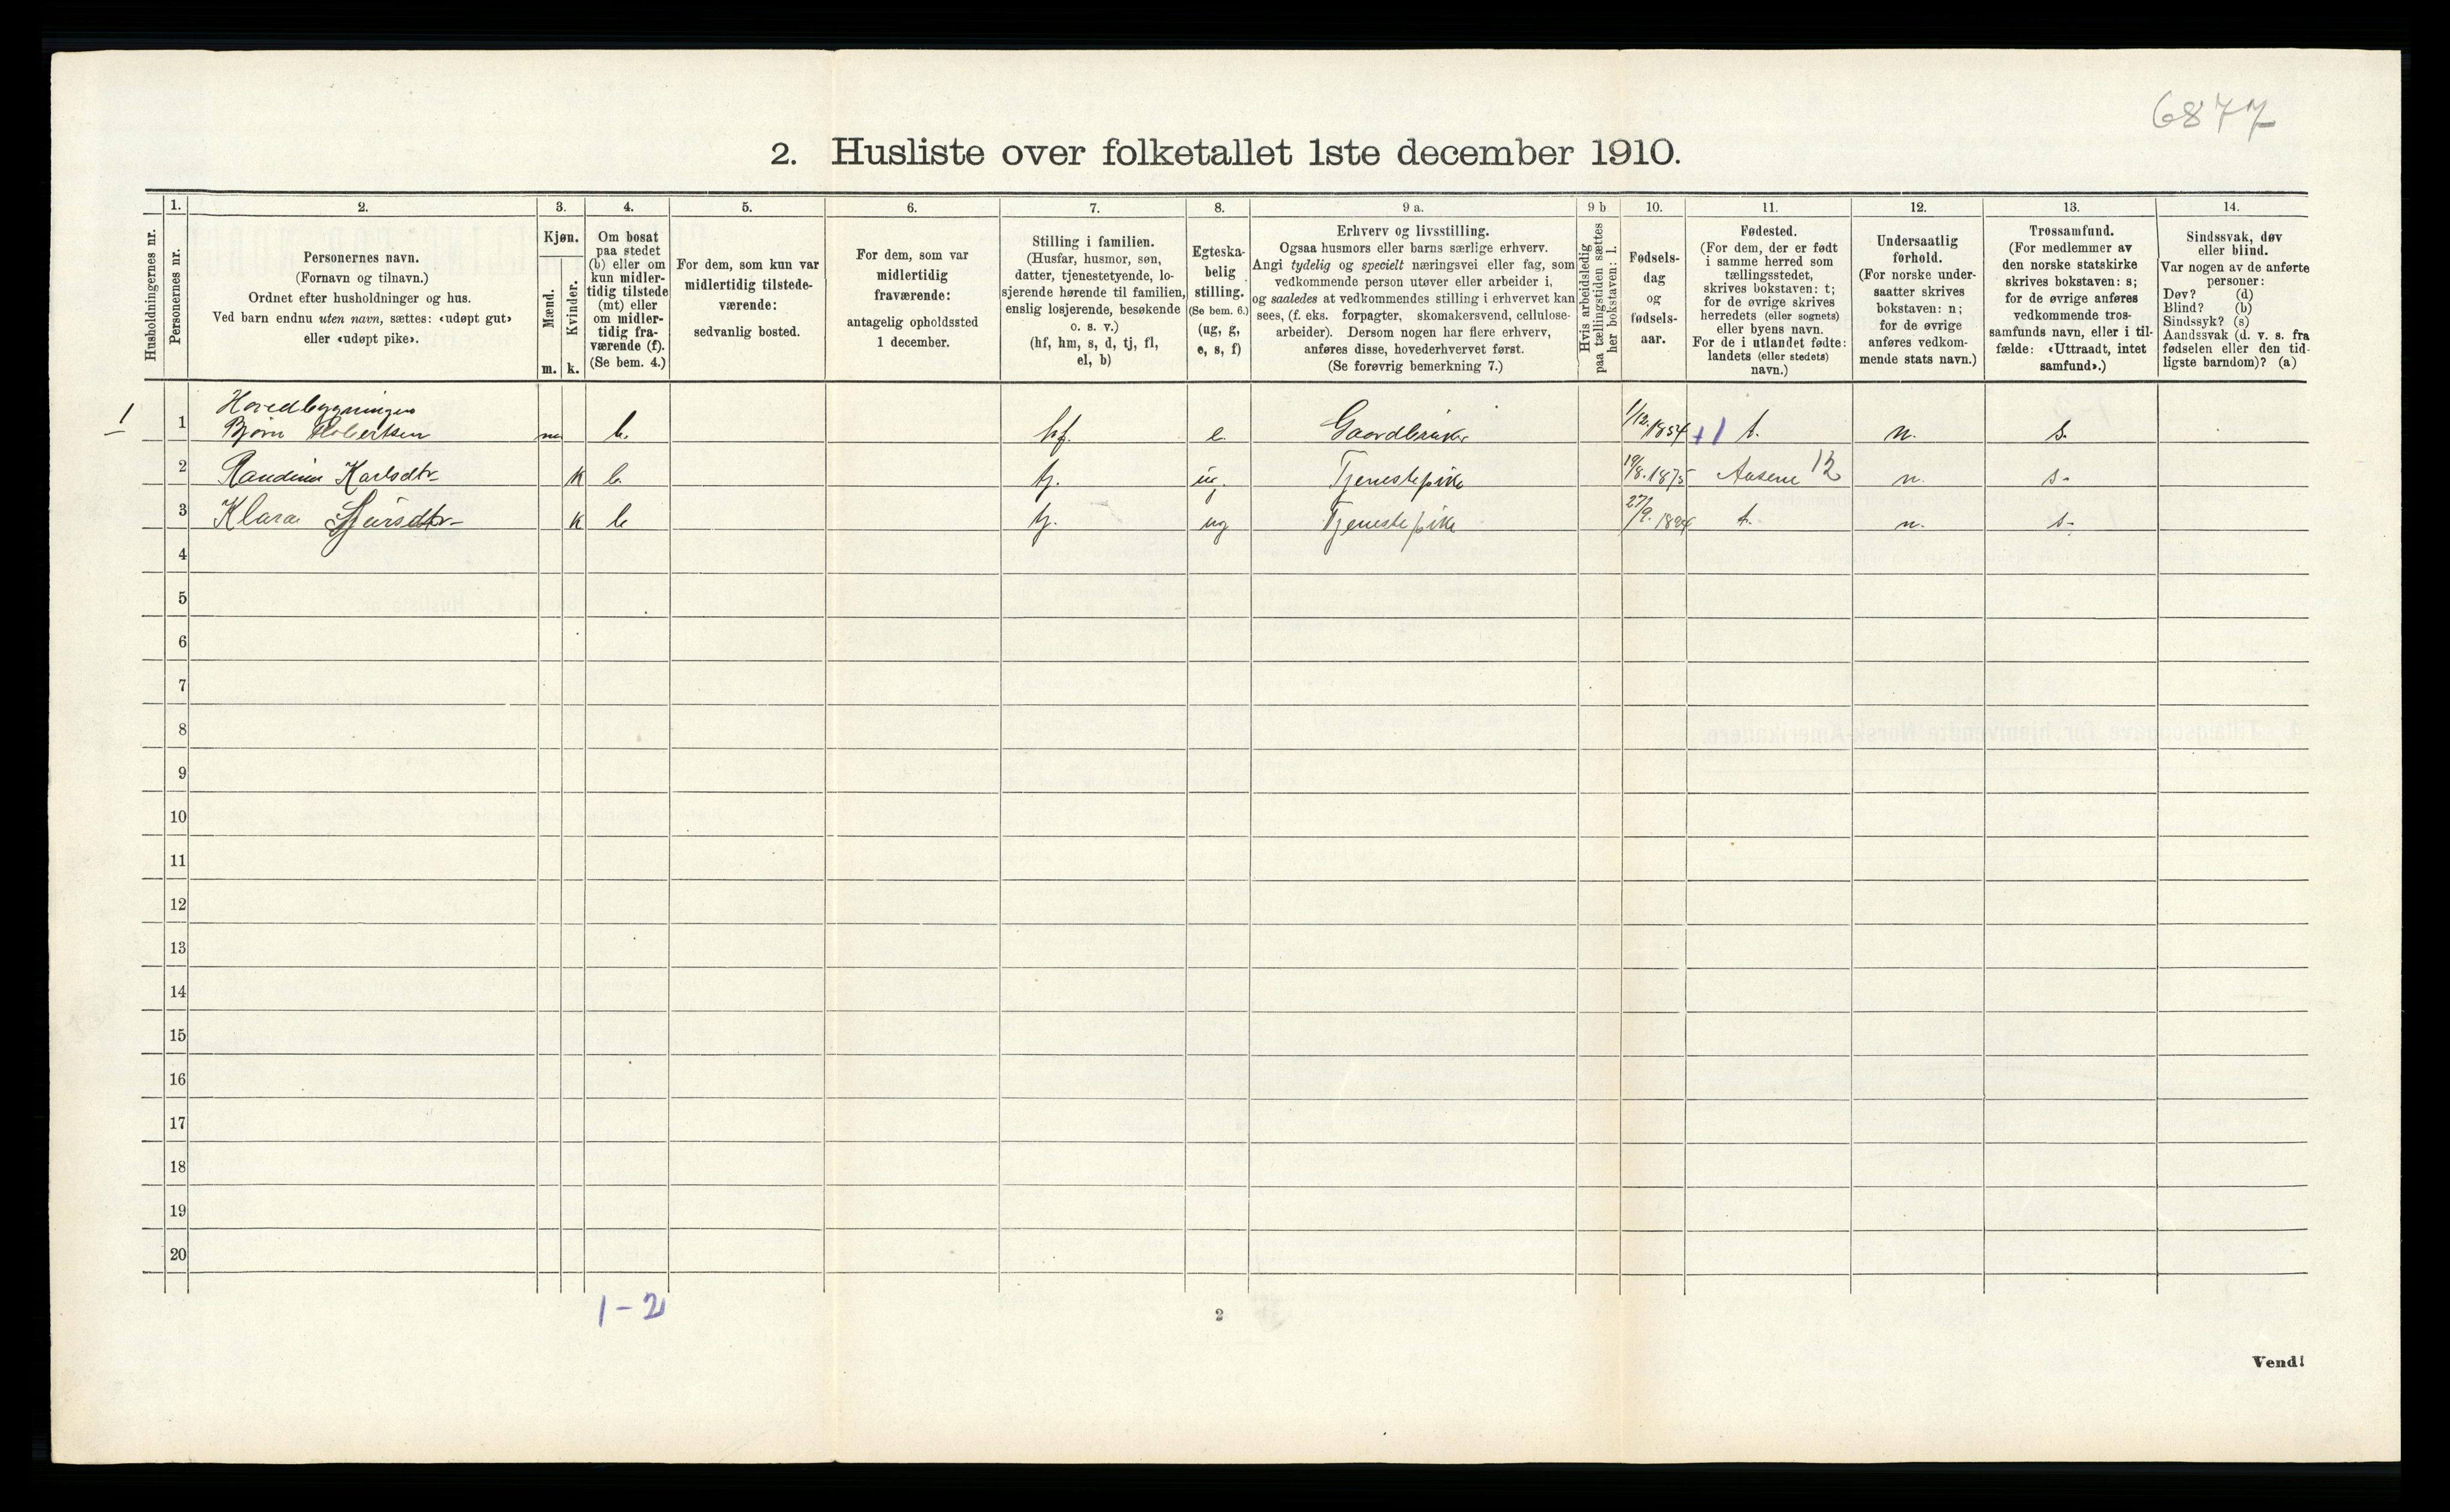 6877
2. Husliste over folketallet 1ste december 1910.
Husholdningernes nr.
1.
Personernes nr.
2.
Personernes navn.
(Fornavn og tilnavn.)
Ordnet efter husholdninger og hus.
Ved barn endnu uten navn, sættes: «udøpt gut»
eller «udøpt pike».
3.
Kjøn.
Mænd.
Kvinder.
m. k.
4.
Om bosat
paa stedet
(b) eller om
kun midler-
tidig tilstede
(mt) eller
om midler-
tidig fra-
værende (f).
(Se bem. 4.)
5.
For dem, som kun var
midlertidig tilstede-
værende:
sedvanlig bosted.
6.
For dem, som var
midlertidig
fraværende:
antagelig opholdssted
1 december.
7.
Stilling i familien.
(Husfar, husmor, søn,
datter, tjenestetyende, lo-
sjerende hørende til familien,
enslig losjerende, besøkende
o. s. v.)
(hf, hm, s, d, tj, fl,
el, b)
8.
Egteska-
belig
stilling.
(Se bem. 6.)
(ug, g,
e, s, f)
9 a.
Erhverv og livsstilling.
Ogsaa husmors eller barns særlige erhverv.
Angi tydelig og specielt næringsvei eller fag, som
vedkommende person utøver eller arbeider i,
og saaledes at vedkommendes stilling i erhvervet kan
sees, (f. eks. forpagter, skomakersvend, cellulose-
arbeider). Dersom nogen har flere erhverv,
anføres disse, hovederhvervet først.
(Se forøvrig bemerkning 7.)
9 b
Hvis arbeidsledig
paa tællingstiden sættes
her bokstaven: l.
10.
Fødsels-
dag
og
fødsels-
aar.
11.
Fødested.
(For dem, der er født
i samme herred som
tællingsstedet,
skrives bokstaven: t;
for de øvrige skrives
herredets (eller sognets)
eller byens navn.
For de i utlandet fødte:
landets (eller stedets)
navn.)
12.
Undersaatlig
forhold.
(For norske under-
saatter skrives
bokstaven: n;
for de øvrige
anføres vedkom-
mende stats navn.)
13.
Trossamfund.
(For medlemmer av
den norske statskirke
skrives bokstaven: s;
for de øvrige anføres
vedkommende tros-
samfunds navn, eller i til-
fælde: «Uttraadt, intet
samfund».)
14.
Sindssvak, døv
eller blind.
Var nogen av de anførte
personer:
Døv? (d)
Blind? (b)
Sindssyk? (s)
Aandssvak (d. v. s. fra
fødselen eller den tid-
ligste barndom)? (a)
Hovedbygningen
1 1 Bjørn m b. hf. e. Gaardbruker 1/12.1854 +1 t. n. s.
2 Karlsdtr k b. tj. ug. Tjenestepike 19/8.1875 Aasene 12 n. s.
3 Klara k b tj. ug Tjenestepike 27/9. t. n. s.
4
5
6
7
8
9
10
11
12
13
14
15
16
17
18
19
20
1-2
2
Vend!